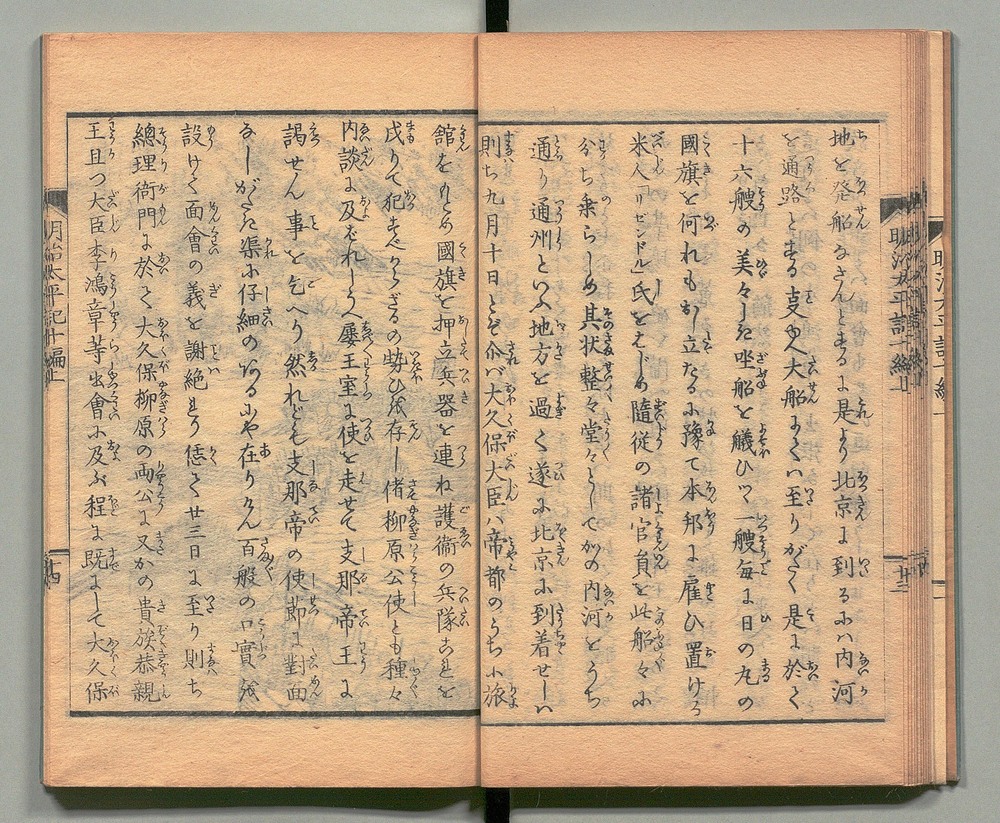 地を発船なさんとするに是より北京に到るには内河
を通路とする支那人大船よくハ至りがたく是に於て
十六艘の美々しき坐船を艤ひて一艘毎に日の丸の
國旗を何れもおし立たるに豫て本邦に雇ひ置ける
米人「リゼンドル」氏をはじめ隨従の諸官員を此船々に
分ち乗らしめ其状整々堂々としてかの内河をうち
通り通州といふ地方を過て遂に北京に到着せしハ
則ち九月十日とぞ尓バ大久保大臣ハ帝都のうちに旅
館をもとめ國旗を押立兵器を連ね護衛の兵隊これを
戍りて犯すべからざるの勢ひを存し偖柳原公使とも種々
内談に及ばれしうへ屡王室に使を走せて支那帝王に
謁せん事を乞へり然れども支那帝の使節に對面
なしがたき渠に仔細のあるにや在りけん百般の口實を
設けて面會の義を謝絶せり恁て廿三日に至り則ち
總理衙門に於て大久保柳原の両公に又かの貴族恭親
王且つ大臣李鴻章等出會に及ぶ程に既にして大久保
明治太平記十編上